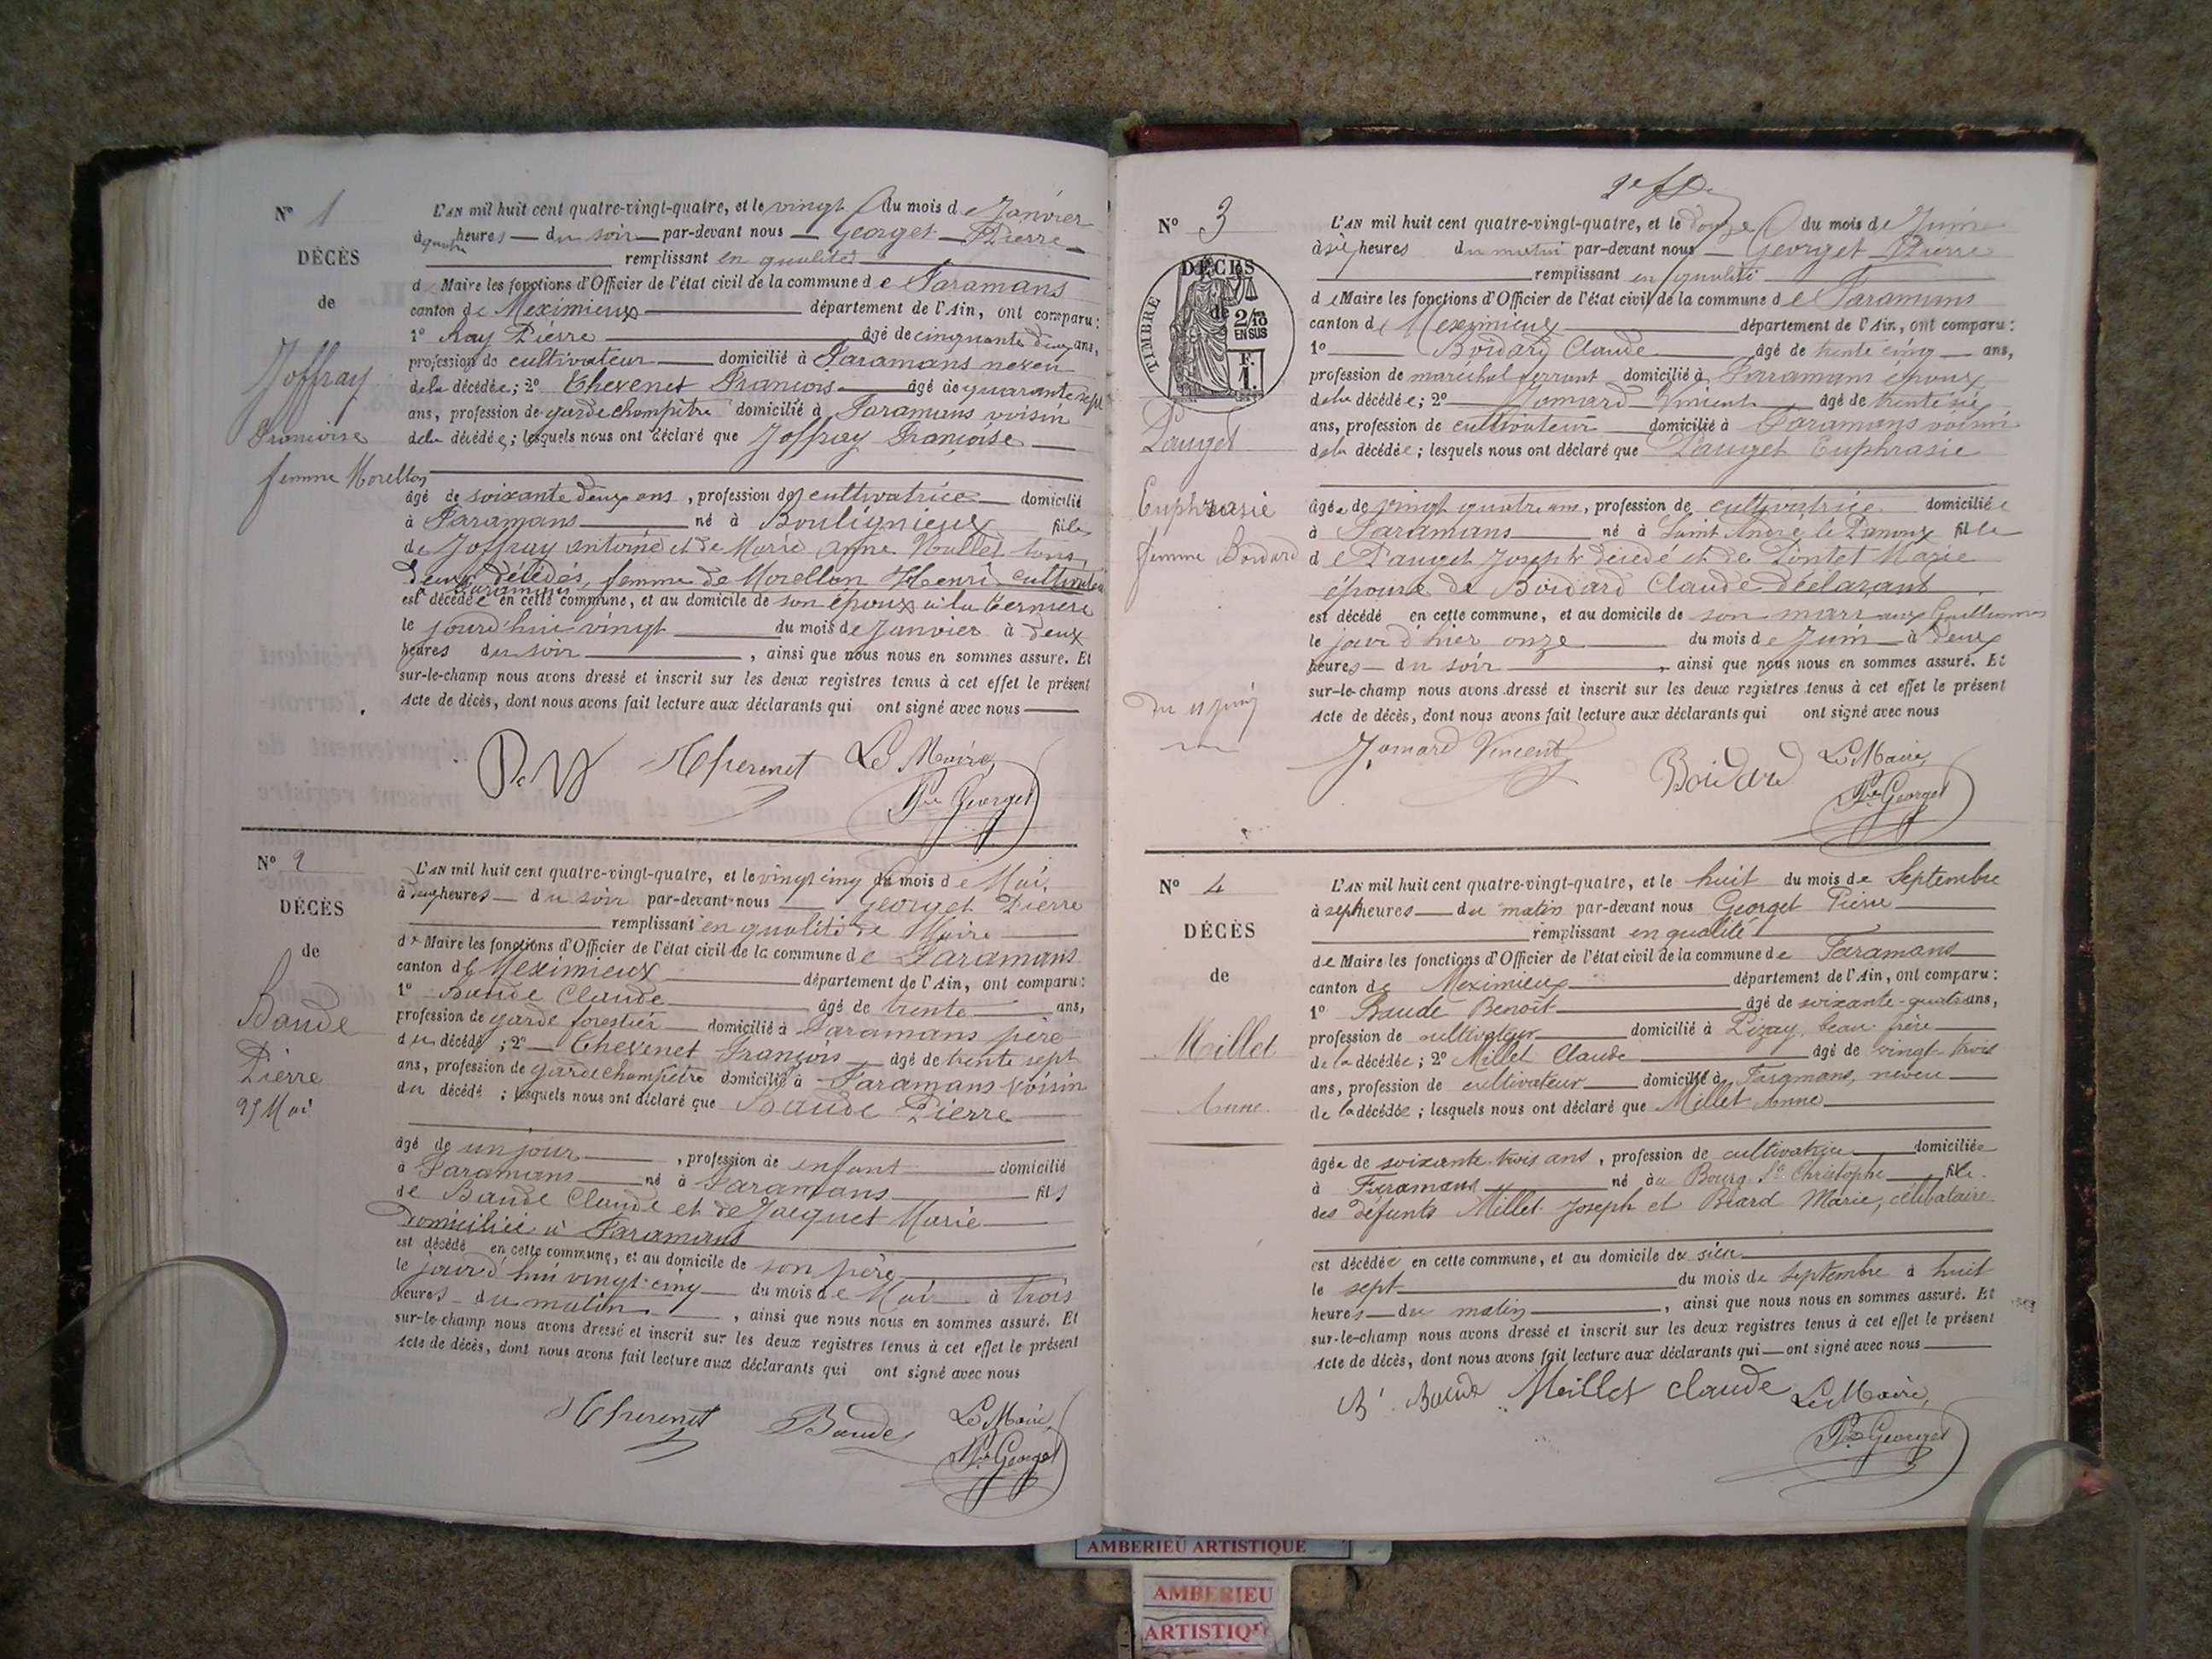 N° 1
DÉCÈS
de
Joffray
Françoise
femme Morellon
L'AN mil huit cent quatre-vingt-quatre, et le vingt du mois de Janvier
à quatre heures du soir par-devant nous Georget Pierre
remplissant en qualité
de Maire les fonctions d'Officier de l'état civil de la commune de Faramans
canton de Meximieux département de l'Ain, ont comparu :
1° Ray Pierre âgé de cinquante deux ans,
profession de cultivateur domicilié à Faramans neveu
de la décédée ; 2° Chevenet François âgé de quarante sept
ans, profession de garde champêtre domicilié à Faramans voisin
de la décédée ; lesquels nous ont déclaré que Joffray Françoise
âgé de soixante deux ans, profession de cultivatrice domicilié
à Faramans né à Bouligneux fille
de Joffray antoine et de Marie anne Vallet tous
deux décédés, femme de Morellon Henri cultivateur
à Faramans
est décédée en cette commune, et au domicile de son époux à la
le jourd'hui vingt du mois de Janvier à deux
heures du soir, ainsi que nous nous en sommes assuré. Et
sur-le-champ nous avons dressé et inscrit sur les deux registres tenus à cet effet le présent
Acte de décès, dont nous avons fait lecture aux déclarants qui ont signé avec nous
Chevenet Le Maire,
Pre Georget
N° 2
DÉCÈS
de
Baude
Pierre
25 Mai
L'AN mil huit cent quatre-vingt-quatre, et le vingt cinq du mois de Mai,
à deux heures du soir par-devant nous Georget Pierre
remplissant en qualité de Maire
de Maire les fonctions d'Officier de l'état civil de la commune de Faramans
canton de Meximieux département de l'Ain, ont comparu :
1° Baude Claude âgé de trente ans,
profession de garde forestier domicilié à Faramans père
du décédé ; 2° Chevenet François âgé de trente sept
ans, profession de garde champêtre domicilié à Faramans voisin
du décédé ; lesquels nous ont déclaré que Baude Pierre
âgé de un jour, profession de enfant domicilié
à Faramans né à Faramans fils
de Baude Claude et de Jacquet Marie
domiciliée à Faramans
est décédé en cette commune, et au domicile de son père
le jourd'hui vingt-cinq du mois de Mai à trois
heures du matin, ainsi que nous nous en sommes assuré. Et
sur-le-champ nous avons dressé et inscrit sur les deux registres tenus à cet effet le présent
Acte de décès, dont nous avons fait lecture aux déclarants qui ont signé avec nous
Chevenet Baude Le Maire,
Pre Georget
N° 3
DÉCÈS
de
TIMBRE
2/10
EN SUS
F.
1.
Pauget
Euphrasie
femme Boidard
du 11 juin
L'AN mil huit cent quatre-vingt-quatre, et le douze du mois de Juin
à six heures du matin par-devant nous Georget Pierre
remplissant en qualité
de Maire les fonctions d'Officier de l'état civil de la commune de Faramans
canton de Meximieux département de l'Ain, ont comparu :
1° Boidard Claude âgé de trente cinq ans,
profession de maréchal ferrant domicilié à Faramans époux
de la décédée ; 2° Jomard Vincent âgé de trente six
ans, profession de cultivateur domicilié à Faramans voisin
de la décédée ; lesquels nous ont déclaré que Pauget Euphrasie
âgée de vingt quatre ans, profession de cultivatrice domiciliée
à Faramans né à Saint André le Panoux fille
de Pauget Joseph décédé et de Pontet Marie
épouse de Boidard Claude déclarant
est décédé en cette commune, et au domicile de son mari aux Guillermes
le jour d'hier onze du mois de Juin à deux
heures du soir, ainsi que nous nous en sommes assuré. Et
sur-le-champ nous avons dressé et inscrit sur les deux registres tenus à cet effet le présent
Acte de décès, dont nous avons fait lecture aux déclarants qui ont signé avec nous
Jomard Vincent Boidard Le Maire,
Pre Georget
N° 4
DÉCÈS
de
Millet
Anne
L'AN mil huit cent quatre-vingt-quatre, et le huit du mois de Septembre
à sept heures du matin par-devant nous Georget Pierre
remplissant en qualité
de Maire les fonctions d'Officier de l'état civil de la commune de Faramans
canton de Meximieux département de l'Ain, ont comparu :
1° Baude Benoît âgé de soixante-quatre ans,
profession de cultivateur domicilié à Pizay, beau-frère
de la décédée ; 2° Millet Claude âgé de vingt-trois
ans, profession de cultivateur domicilié à Faramans, neveu
de la décédée ; lesquels nous ont déclaré que Millet Anne
âgée de soixante-trois ans, profession de cultivatrice domiciliée
à Faramans né au Bourg St Christophe fille
des défunts Millet Joseph et Béard Marie, célibataire
est décédée en cette commune, et au domicile de sien
le sept du mois de Septembre à huit
heures du matin, ainsi que nous nous en sommes assuré. Et
sur-le-champ nous avons dressé et inscrit sur les deux registres tenus à cet effet le présent
Acte de décès, dont nous avons fait lecture aux déclarants qui ont signé avec nous
Bt Baude Meillet Claude Le Maire,
Pre Georget
AMBERIEU ARTISTIQUE
AMBERIEU
ARTISTIQU